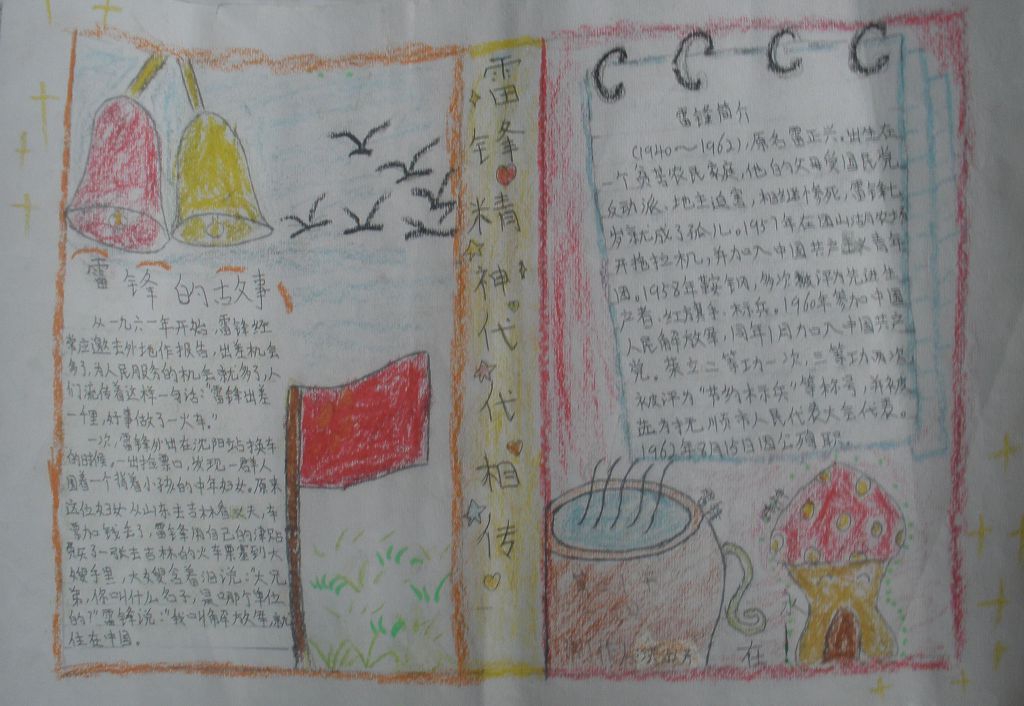 雷锋的故事
从一九六一年开始,雷锋经
常应邀去外地作报告,出差机会
多了,为人民服务的机会就多了,人
们流传着这样一句话:“雷锋出差
一千里,好事做了一火车。”
一次,雷锋外出在沈阳站换车
的时候,一出检票口,发现一群人
围着一个背着小孩的中年妇女。原来
这位妇女从山东去吉林看丈夫,车
票和钱丢了,雷锋用自己的津贴
费买了一张去吉林的火车票塞到大
嫂手里,大嫂含着泪说:“大兄
弟,你叫什么名字,是哪个单位
的?”雷锋说:“我叫解放军,就
住在中国。
雷锋精神代代相传
雷锋简介
(1940～1962),原名雷正兴。出生在
一个贫苦农民家庭,他的父母受国民党
反动派、地主迫害,相继惨死,雷锋七
岁就成了孤儿。1957年在团山湖农场
开拖拉机,并加入中国共产 青年
团。1958年鞍钢,多次被评为先进生
产者,红旗手、标兵。1960年参加中国
人民解放军,同年1月加入中国共产
党。荣立二等功一次,三等功两次
被评为“节约标兵”等称号,并被
选为抚顺市人民代表大会代表。
1962年8月15日因公殉职。
永
在